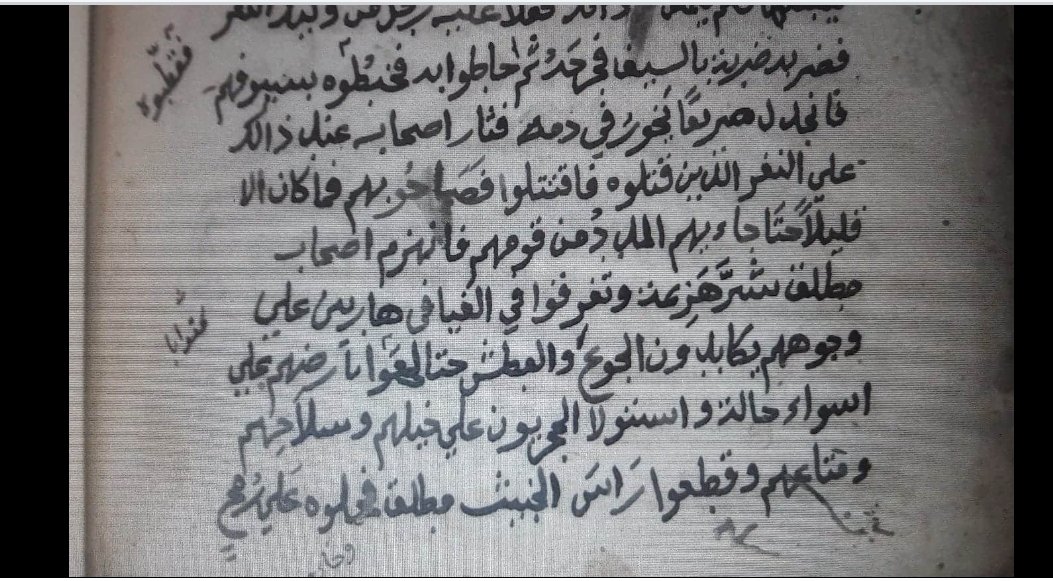 فضربه ضربة بالسيف فجرحه ثم احاطوا به فخبطُوه بسيوفهم
فانجدل صريعًا يخورُ في دمه فثار اصحابه عند ذالك
علي النفر الذين قتلوه فاقتتلوا فصَاحُو بهم فما كان الا
قليلًا حتَا جاء بهم المددُ من قومهم فانهزم اصحاب
مطلق شرَّ هَزيمة وتفرقوا في الفيافي هاربين علي
وجوههم يكابدون الجوع والعطش حتا لحقَوا بارضهم علي
اسواء حالة واستولا البحريون علي خيلهم وسلاحهم
ومتاعهم وقطعوا رَاسَ الخبيث مطلق فحملوه عَلي رُمحٍ